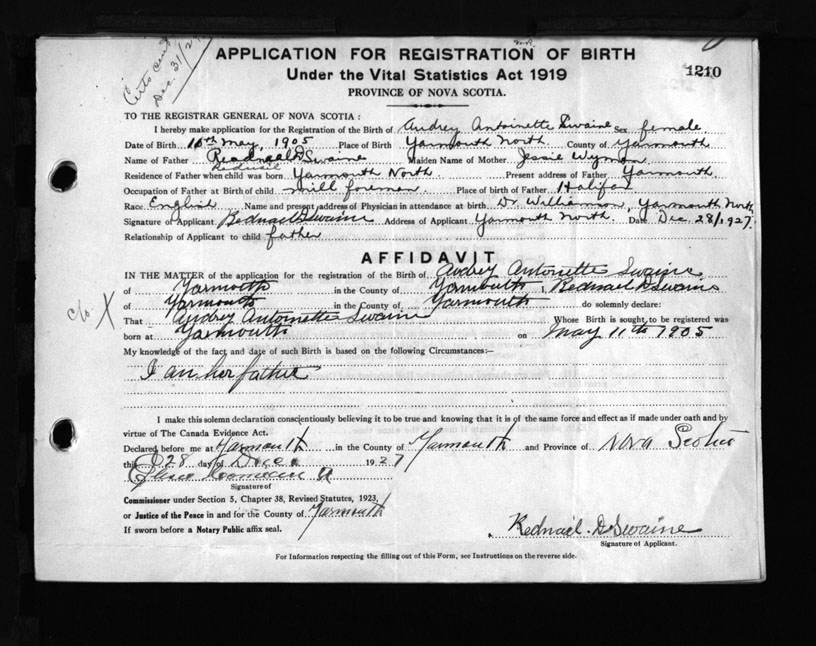 Certs sent
Dec. 31/27
APPLICATION FOR REGISTRATION OF BIRTH
1210
Under the Vital Statistics Act 1919
PROVINCE OF NOVA SCOTIA.
TO THE REGISTRAR GENERAL OF NOVA SCOTIA :
I hereby make application for the Registration of the Birth of Audrey Antoinette Swaine Sex female
Date of Birth May, 1905 Place of Birth Yarmouth North County of Yarmouth
Name of Father Swaine Maiden Name of Mother Jessie Wyman
Rednail
Residence of Father when child was born Yarmouth North. Present address of Father Yarmouth
Occupation of Father at Birth of child mill foreman Place of birth of Father Halifax
Race English Name and present address of Physician in attendance at birth Dr Williamson, Yarmouth North
Signature of Applicant Rednail D Swaine Address of Applicant Yarmouth North. Date Dec. 28/1927.
Relationship of Applicant to child father
AFFIDAVIT
IN THE MATTER of the application for the registration of the Birth of Audrey Antoinette Swaine
of Yarmouth in the County of Yarmouth, I Rednael D Swaine
of Yarmouth in the County of Yarmouth do solemnly declare:
c/o X
That Audrey Antoinette Swaine Whose Birth is sought to be registered was
born at Yarmouth on May 11th 1905
My knowledge of the fact and date of such Birth is based on the following Circumstances:—
I am her father
I make this solemn declaration conscientiously believing it to be true and knowing that it is of the same force and effect as if made under oath and by
virtue of The Canada Evidence Act.
Declared before me at Yarmouth in the County of Yarmouth and Province of Nova Scotia
this 28 day of Dece 1927
Signature of
Commissioner under Section 5, Chapter 38, Revised Statutes, 1923,
or Justice of the Peace in and for the County of Yarmouth
If sworn before a Notary Public affix seal.
Rednael D Swaine
Signature of Applicant.
For Information respecting the filling out of this Form, see Instructions on the reverse side.